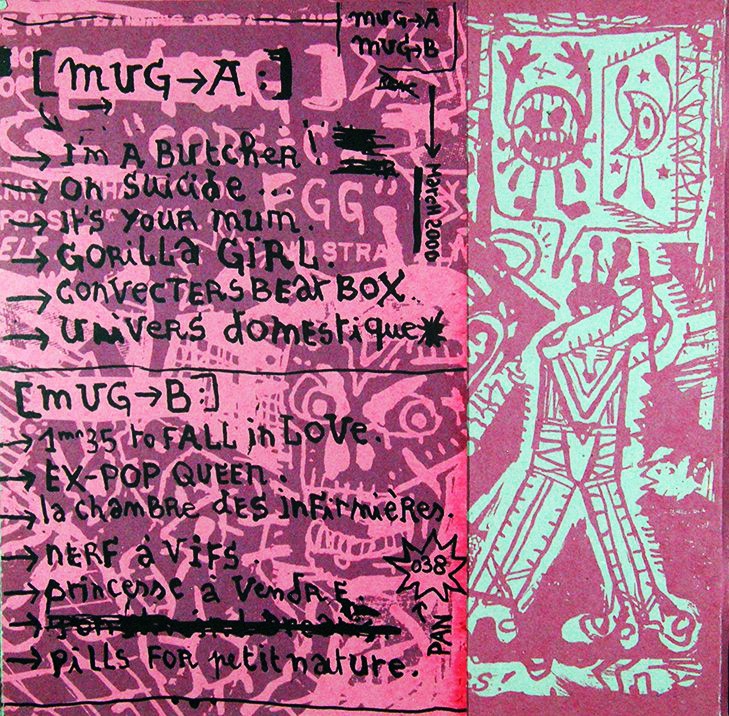 MUG→A
MUG→B
[MUG→A:]
→ I'm A Butcher!
→ on suicide...
→ It's your mum.
→ GORILLA GIRL.
→ CONVECTERS BEAT BOX
→ univers domestique*
March 2000
[MUG→B:]
→ 1mn35 to FALL in LOVE.
→ EX-POP QUEEN.
→ la chambre des infirmières.
→ NERF à VIFS.
→ princesse à VENDRE.
→ pills FOR petit nature.
038
PAN
EGG"